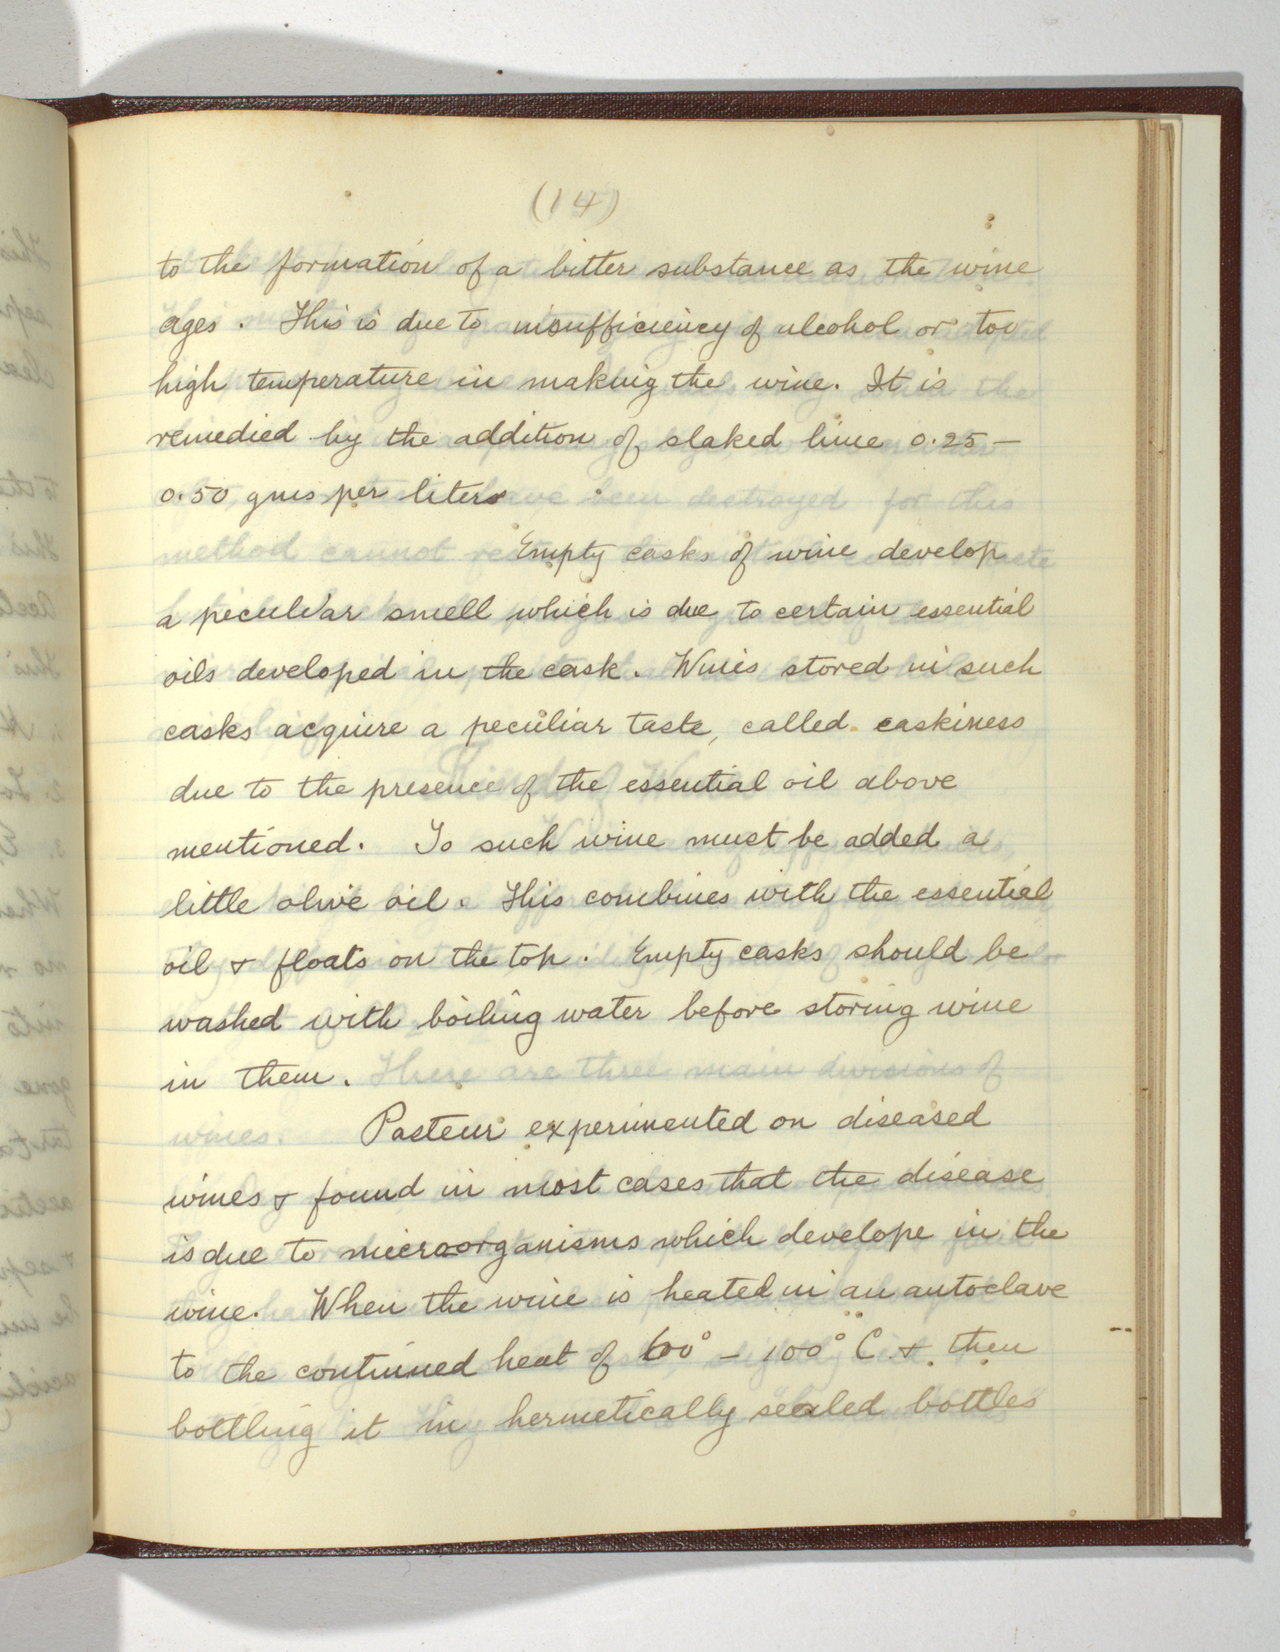 (14)
to the formation of a bitter substance as the wine
ages. This is due to insufficiency of alcohol or too
high temperature in making the wine. It is
remedied by the addition of slaked lime 0.25 —
0.50 gms per liter
Empty casks of wine develop
a peculiar smell which is due to certain essential
oils developed in the cask. Wines stored in such
casks acquire a peculiar taste, called caskiness
due to the presence of the essential oil above
mentioned. To such wine must be added a
little olive oil. This combines with the essential
oil & floats on the top. Empty casks should be
washed with boiling water before storing wine
in them.
Pasteur experimented on diseased
wines & found in most cases that the disease
is due to microorganisms which develope in the
wine. When the wine is heated in an autoclave
to the continued heat of 60° — 100° C. & then
bottling it in hermetically sealed bottles